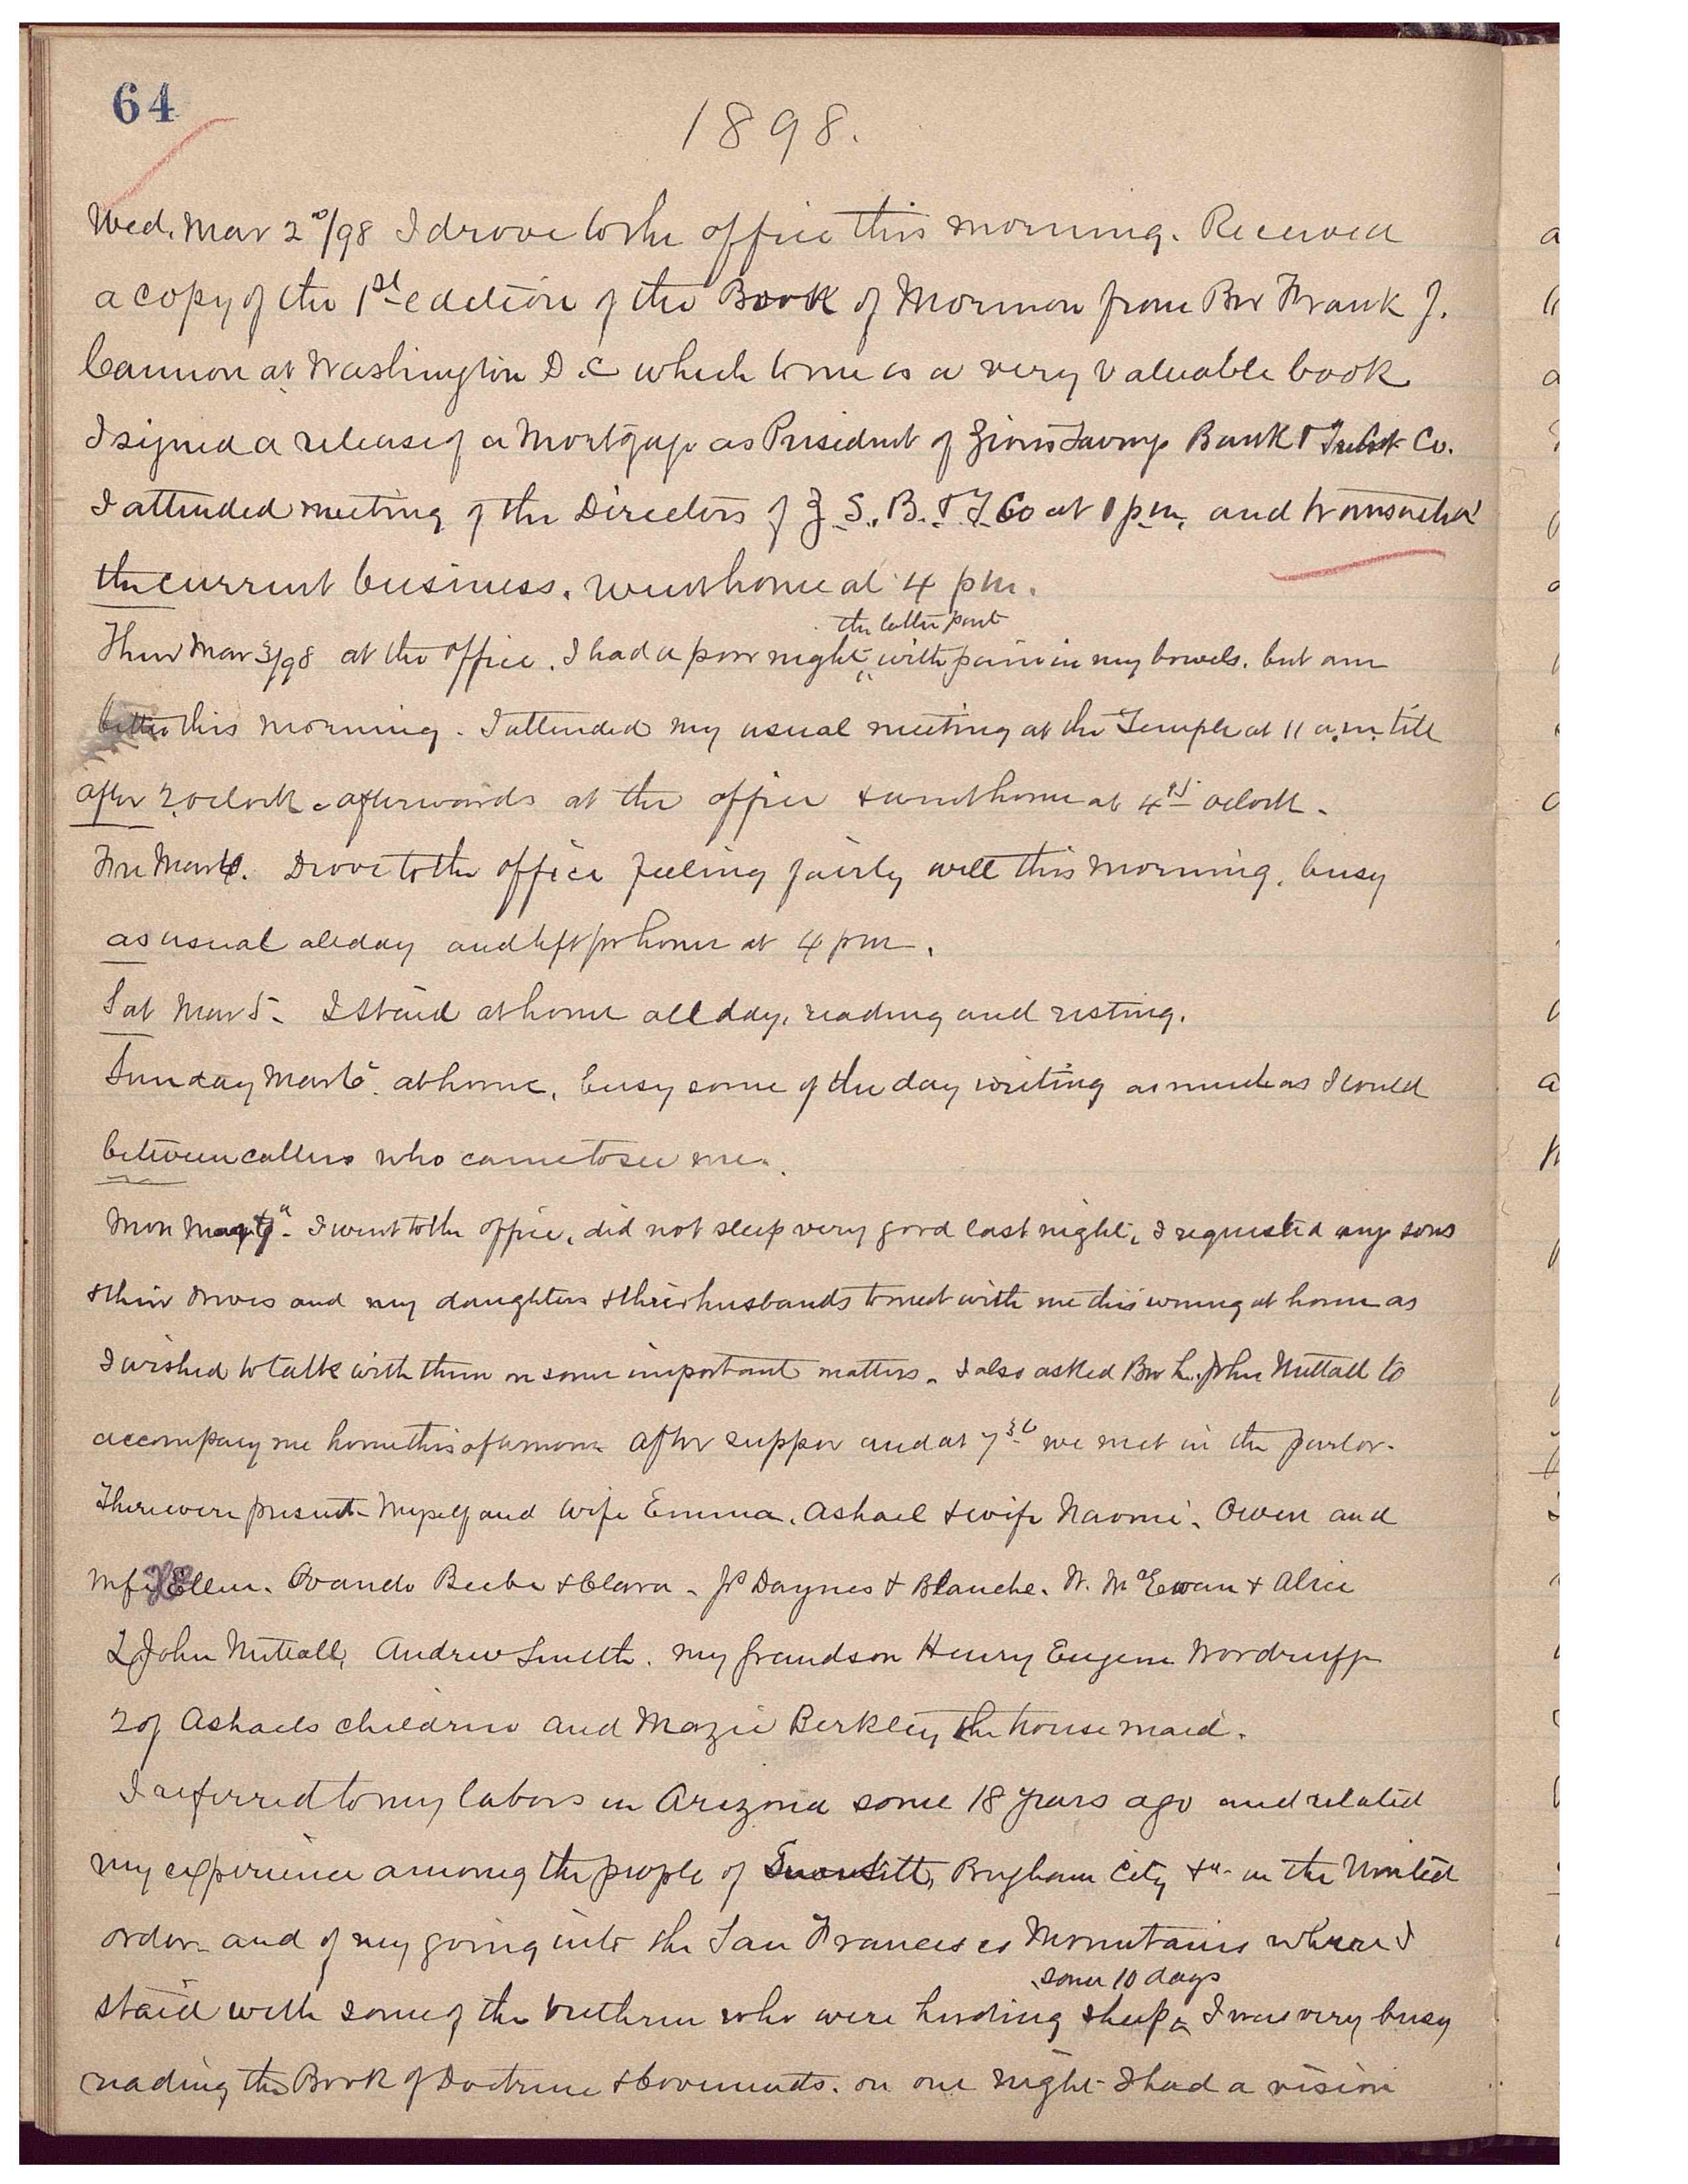 64
1898.
Wed. Mar 2d/98 I drove to the office this morning. Received
a copy of the 1st edition of the Book of Mormon from Bro Frank J.
Cannon at Washington D.C which to me is a very valuable book
I signed a release of a Mortgage as President of Zions Savings Bank & Trust Co.
I attended meeting of the Directors of Z. S. B. & T. Co at 1 pm. and transacted
the current business. went home at 4 pm.
the latter part
Thur Mar 3/98 at the office. I had a poor night with pain in my bowels. but am
better this morning. I attended my usual meeting at the Temple at 11 a.m. till
after 2 oclock. afterwards at the office & went home at 4 oclock.
Fri Mar 4. Drove to the office feeling fairly well this morning, busy
as usual all day and left for home at 4 pm.
Sat Mar 5. I staid at home all day, reading and resting.
Sunday Mar 6. at home, busy some of the day writing as much as I could
between callers who came to see me.
Mon Mar 7. I went to the office, did not sleep very good last night, I requested my sons
& their wives and my daughters & their husbands to meet with me this evening at home as
I wished to talk with them on some important matters. I also asked Bro L. John Nuttall to
accompany me home this afternoon after supper and at 7 30 we met in the parlor.
There were present Myself and wife Emma, Ashael & wife Naomi, Owen and
wife Ellen. Ovando Beebe & Clara. Js Daynes & Blanche. W. McEwan & Alice
L John Nuttall, Andrew Smith. my grandson Henry Eugene Woodruff
2 of Ashaels children and Mazie Berkley the house maid.
I referred to my labors in Arizona some 18 years ago and related
my experience among the people of Brigham City &c in the United
order and of my going into the San Francisco Mountains where I
some 10 days
staid with some of the brethren who were herding sheep I was very busy
reading the Book of Doctrine & Covenants. on one night I had a vision